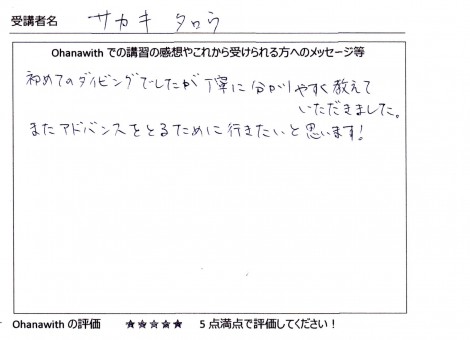 受講者名 サカキ タロウ
Ohanawith での講習の感想やこれから受けられる方へのメッセージ等
初めてのダイビングでしたが丁寧に分かりやすく教えて
いただきました。
またアドバンスをとるために行きたいと思います!
Ohanawith の評価 ★★★★★ 5点満点で評価してください!